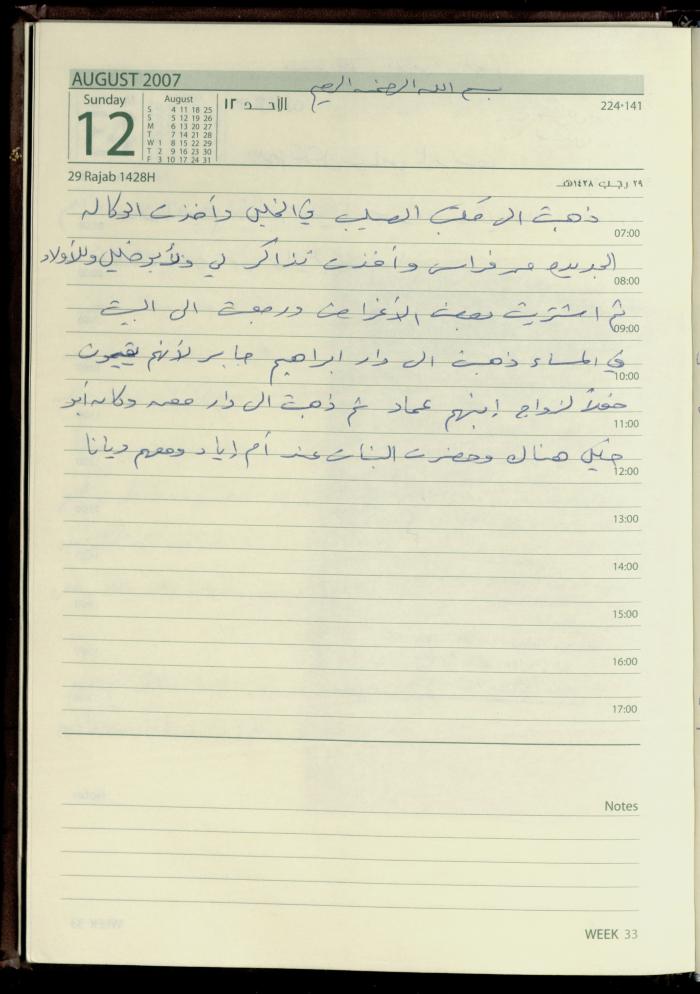 AUGUST 2007
بسم الله الرحمن الرحيم
Sunday
12
August
S 4 11 18 25
S 5 12 19 26
M 6 13 20 27
T 7 14 21 28
W 1 8 15 22 29
T 2 9 16 23 30
F 3 10 17 24 31
الأحد ١٢
224-141
29 Rajab 1428H
٢٩ رجب ١٤٢٨هـ
ذهبت الى مكتب الصليب في الخليل وأخذت الوكاله
07:00
الجديده من فراس وأخذت تذاكر لي ولأبو خليل وللأولاد
08:00
ثم اشتريت بعض الأغراض ورجعت الى البيت
09:00
في المساء ذهبت الى دار ابراهيم جابر لأنهم يقيمون
10:00
حفلاً لزواج إبنهم عماد ثم ذهبت الى دار وكان أبو
11:00
خليل هناك وحضرت البنات عند أم إياد ومعهم ديانا
12:00
13:00
14:00
15:00
16:00
17:00
Notes
WEEK 33